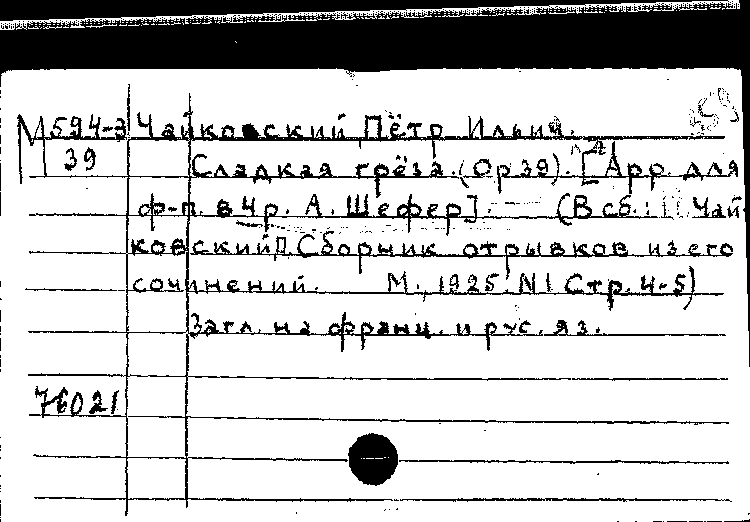 М594-3 Чайковский Пётр Ильич.
39 Сладкая грёза. (Op 39). [Арр. для
ф-п. в 4 р. А. Шефер]. (В сб.: Чай-
ковский П. Сборник отрывков из его
сочинений. М., 1925. N1 Стр. 4-5)
Загл. на франц. и рус. яз.
76021